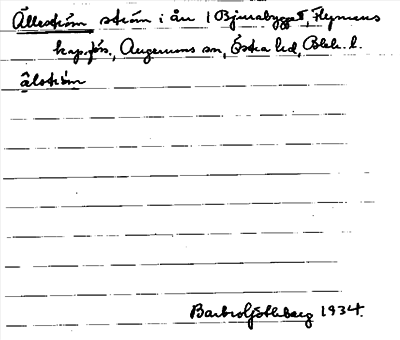 Ålleström ström i ån i Bjurabygget, Flymens
kap.förs., Augerums sn, Östra hd, Blek. l.
ålström
Barbro Göthberg 1934.